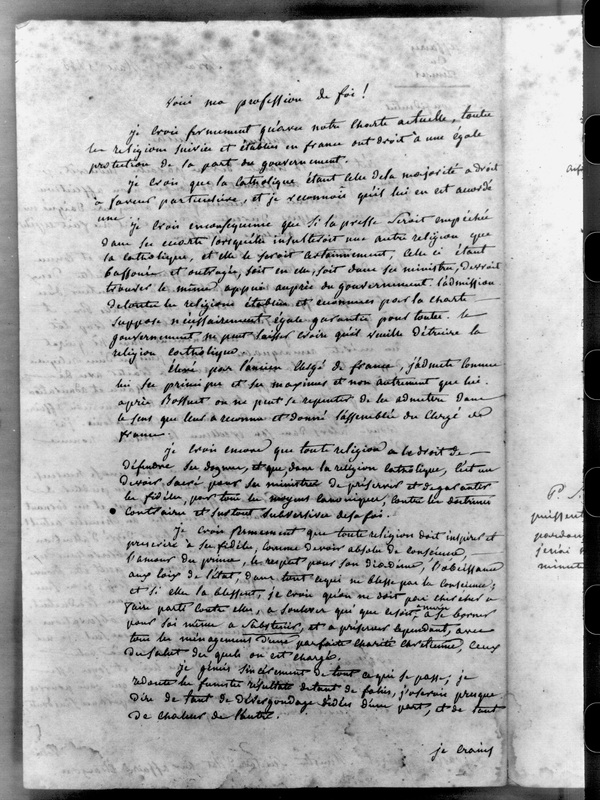 Voici ma profession de foi!
je crois fermement qu'avec notre charte actuelle, toutes
les religions suivies et établies en france ont droit à une égale
protection de la part du gouvernement.
je crois que la catholique étant celle de la majorité a droit
à faveur particulière, et je reconnois qu'il lui en est accordé
une
je crois en conséquence que si la presse seroit empêchée
dans ses écarts lorsqu'elle insulteroit une autre religion que
la catholique, et elle le seroit certainement, celle ci étant
baffouée et outragée, soit en elle, soit dans ses ministres, devroit
trouver le même appui auprès du gouvernement. l'admission
de toutes les religions établies et reconnues par la charte
suppose nécessairement égale garantie pour toutes. le
gouvernement ne peut laisser croire qu'il veuille détruire la
religion catholique.
élevé par l'ancien clergé de france, j'admets comme
lui ses principes et ses maximes et non autrement que lui.
après Bossuet on ne peut se repentir de les admettre dans
le sens que leur a reconnu et donné l'assemblée du Clergé de
france.
je crois encore que toute religion a le droit de
défendre ses dogmes, et que, dans la religion catholique, c'est un
devoir sacré pour ses ministres de préserver et de garantir
les fidèles, par tous les moyens canoniques, contre les doctrines
contraires et surtout subversives de sa foi.
je crois fermement que toute religion doit inspirer et
prescrire à ses fidèles, comme devoir absolu de conscience,
l'amour du prince, le respect pour son diadème, l'obéissance
aux loix de l'état, dans tout ce qui ne blesse pas la conscience;
et si elles la blessent, je crois qu'on ne doit pas chercher à
faire parti contre elles, à soulever qui que ce soit, à se borner
pour soi même à s'abstenir, et à préserver cependant, avec
tous les ménagemens d'une parfaite charité chrétienne, ceux
du salut des quels on est chargé.
je gémis sincèrement de tout ce qui se passe, je
redoute les funestes résultats de tant de folies, j'oserois presque
dire de tant de dévergondage d'idées d'une part, et de tant
de chaleur de l'autre.
je crains
P. S.
puissent